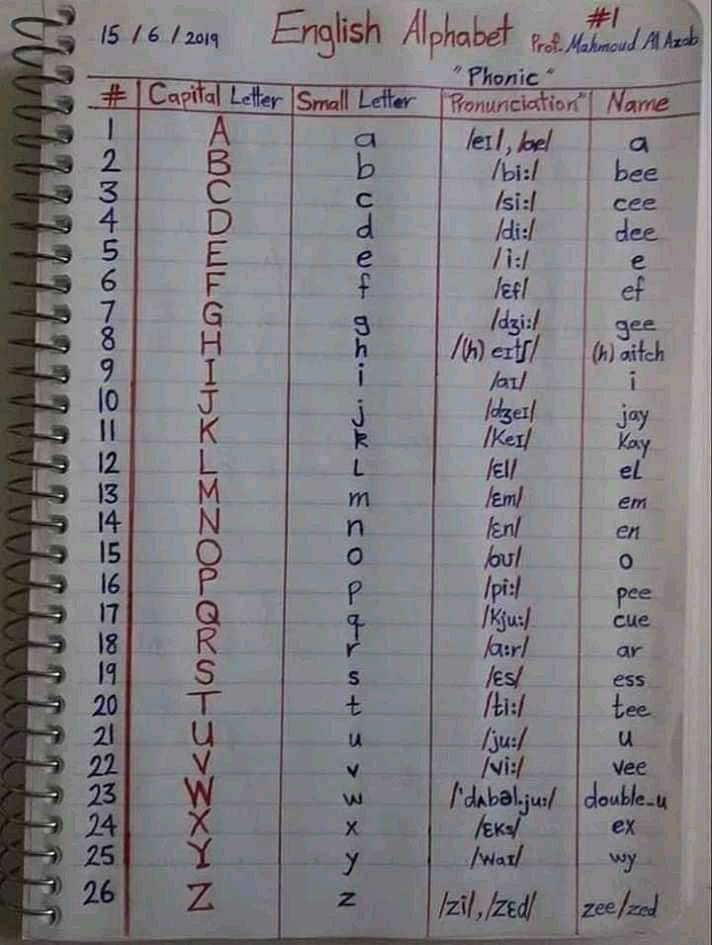 15 / 6 / 2019 English Alphabet #1
Prof. Mahmoud Al Azab
"Phonic"
# Capital Letter Small Letter "Pronunciation" Name
1 A a /eɪ/, /æ/ a
2 B b /bi:/ bee
3 C c /si:/ cee
4 D d /di:/ dee
5 E e /i:/ e
6 F f /ɛf/ ef
7 G g /dʒi:/ gee
8 H h /(h) eɪtʃ/ (h) aitch
9 I i /aɪ/ i
10 J j /dʒeɪ/ jay
11 K k /Keɪ/ Kay
12 L L /ɛl/ eL
13 M m /ɛm/ em
14 N n /ɛn/ en
15 O o /oʊ/ o
16 P p /pi:/ pee
17 Q q /Kju:/ cue
18 R r /a:r/ ar
19 S s /ɛs/ ess
20 T t /ti:/ tee
21 U u /ju:/ u
22 V v /vi:/ vee
23 W w /'dʌbəl.ju:/ double-u
24 X x /ɛKs/ ex
25 Y y /waɪ/ wy
26 Z z /zi/, /zɛd/ zee/zed